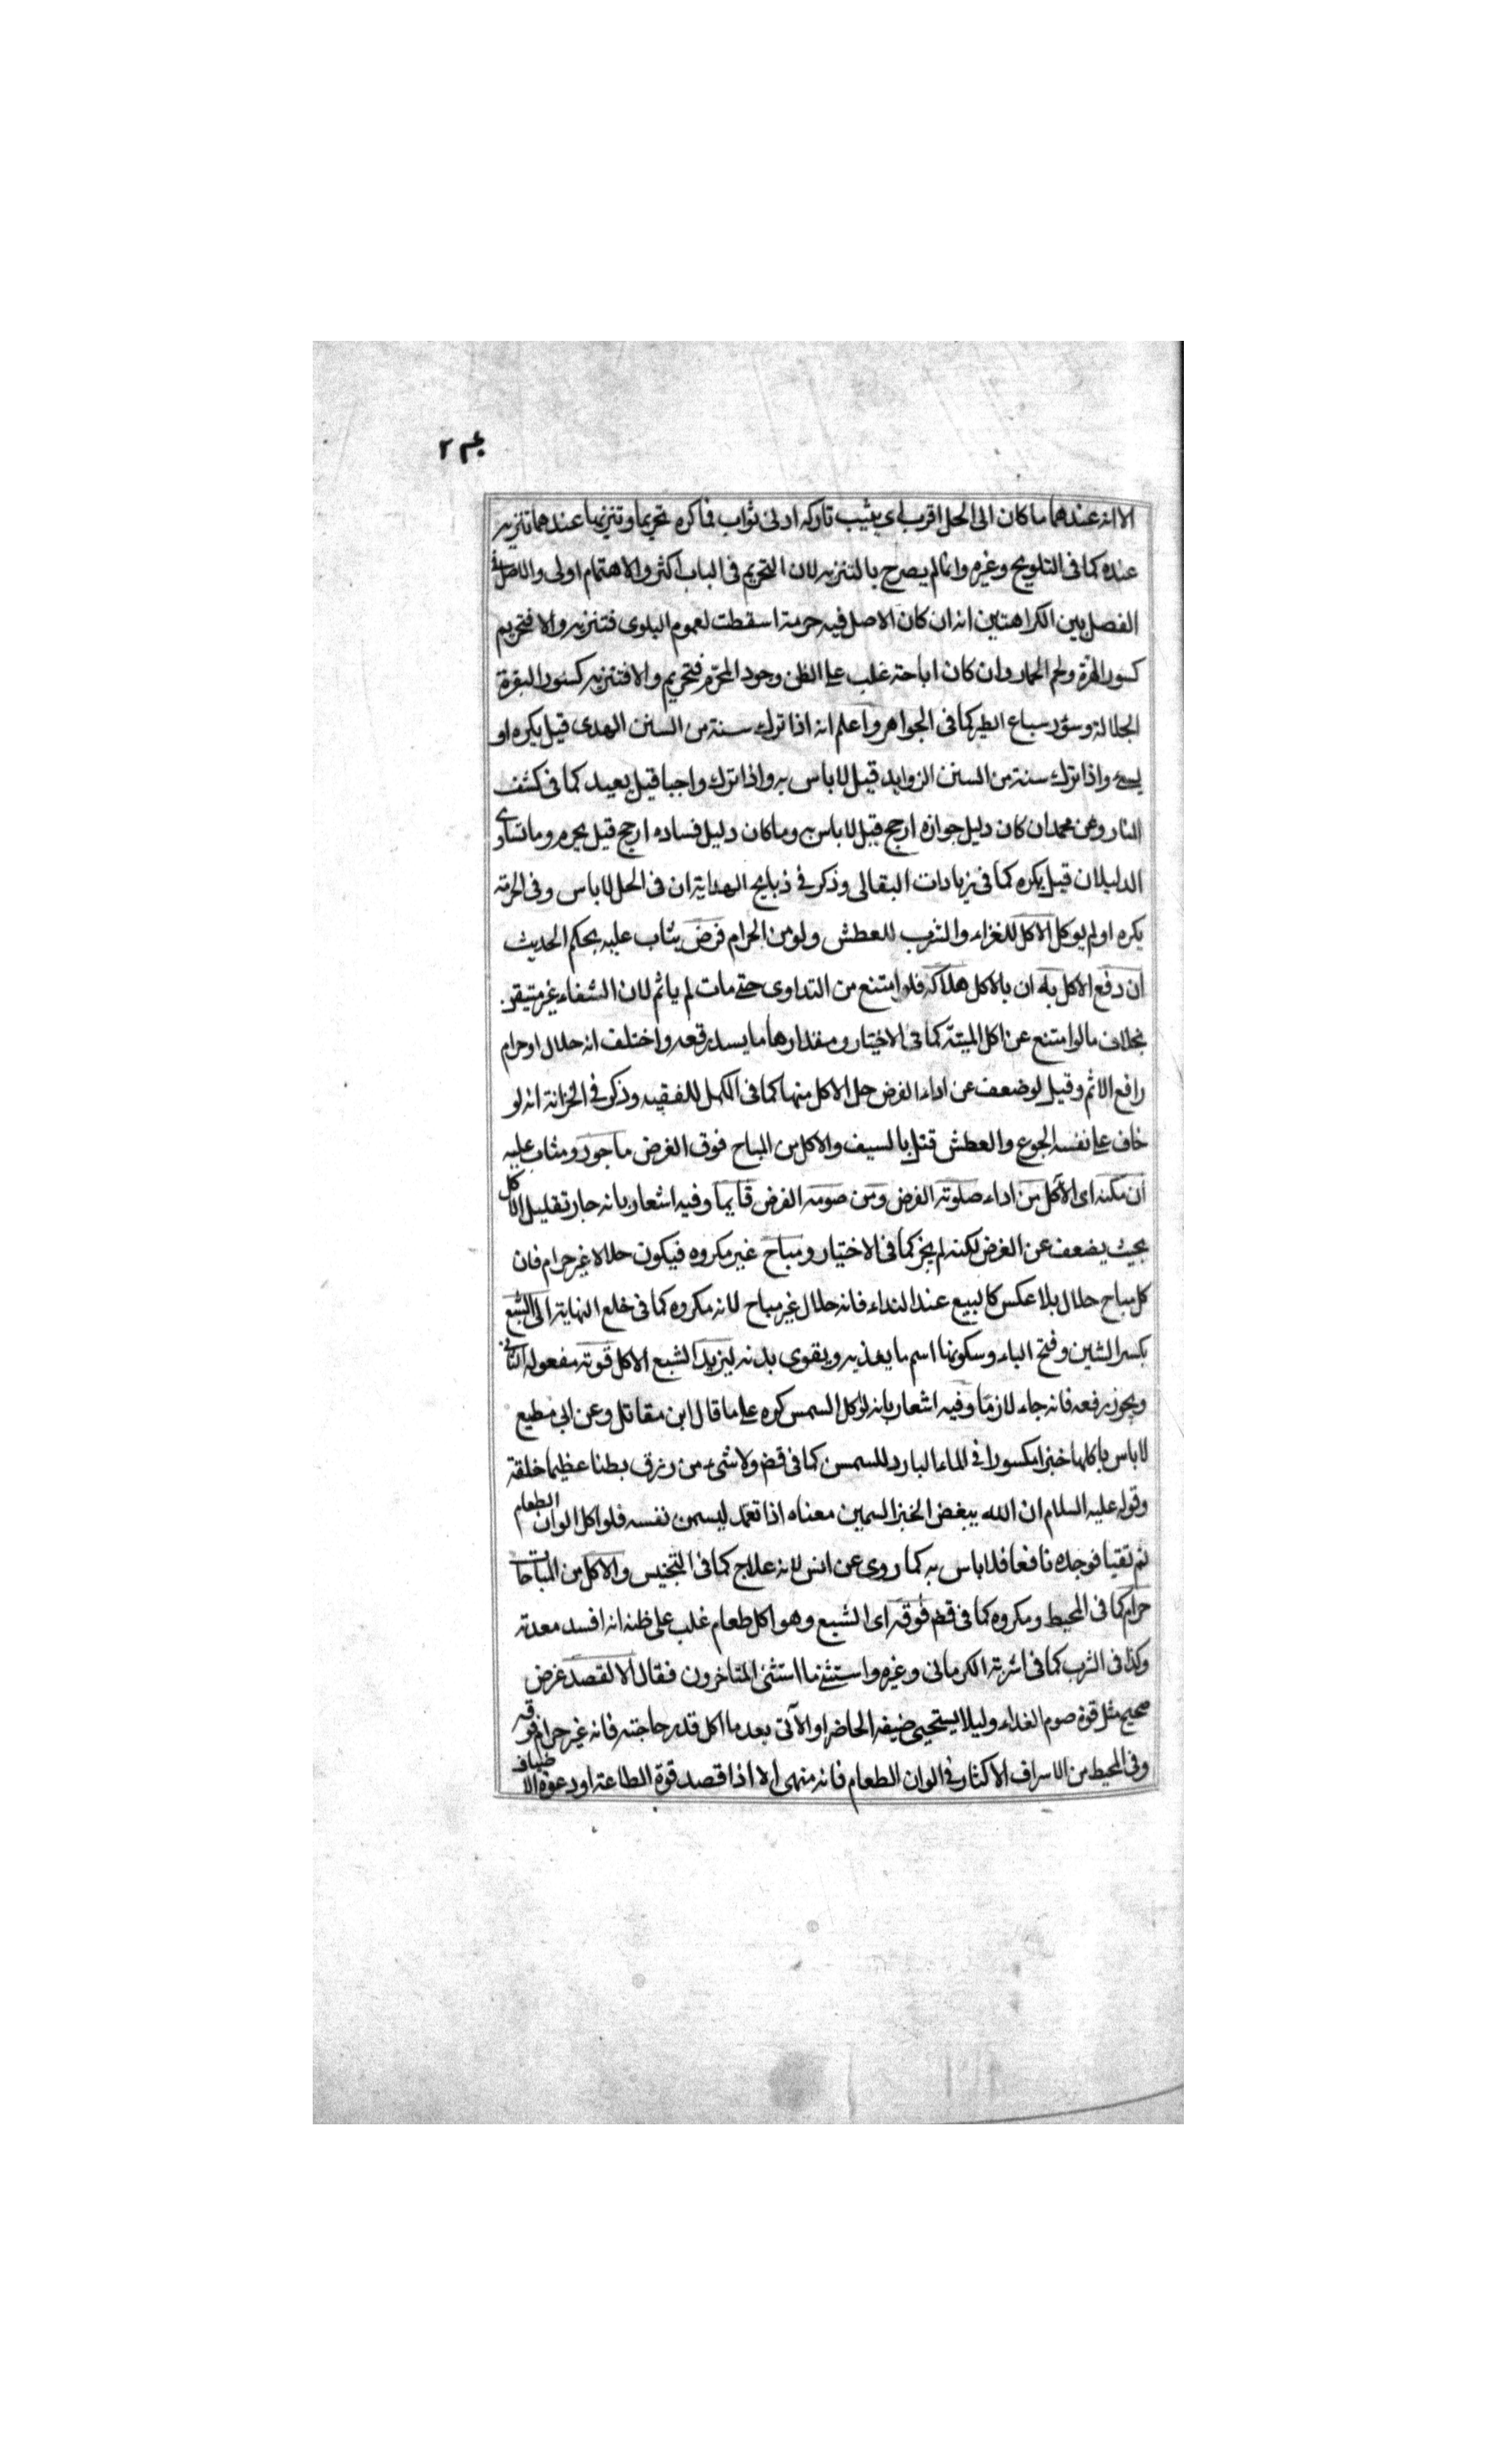 الا انه عندهما ما كان الى الحل اقرب اى يثيب تاركه ادنى ثواب فما كره تحريما وتنزيها عندهما تنزيه
عنده كما فى التلويح وغيره وانما لم يصرح بالتنزيه لان التحريم فى الباب اكثر والاهتمام اولى والاصل فى
الفصل بين الكراهتين انه ان كان الاصل فيه حرمة اسقطت لعموم البلوى فتنزيه والا فتحريم
كسور الهرة ولحم الحمار وان كان اباحة غلب على الظن وجود المحرم فتحريم والا فتنزيه كسور البقرة
الجلالة وسؤر سباع الطير كما فى الجواهر واعلم انه اذا ترك سنة من السنن الهدى قيل يكره او
يسئ واذا ترك سنة من السنن الزوايد قيل لا باس به واذا ترك واجبا قيل يعيد كما فى كشف
المنار وعن محمد ان كان دليل جوازه ارجح قيل لا باس به وما كان دليل فساده ارجح قيل يكره وما تساوى
الدليلان قيل يكره كما فى زيادات البقالى وذكر فى ذبايح الهداية ان فى الحل لا باس وفى الحرمة
يكره او لم يوكل الاكل للغزاء والشرب للعطش ولو من الحرام فرض يثاب عليه بحكم الحديث
ان دفع الاكل به ان بالاكل هلاكه فلو امتنع من التداوى حتى مات لم ياثم لان الشفاء غير متيقن
بخلاف ما لو امتنع عن اكل الميتة كما فى الاختيار ومقدارها ما يسد رقعه واختلف انه حلال او حرام
رافع الاثم وقيل لو ضعف عن اداء الفرض حل الاكل منها كما فى الكهل للفقيه وذكر فى الخزانة انه لو
خاف على نفسه الجوع والعطش قتل بالسيف والاكل من المباح فوق الفرض ماجور ومثاب عليه
ان مكنه اى الاكل من اداء صلوته الفرض ومن صومه الفرض قايما وفيه اشعار بانه جاز تقليل الاكل
بحيث يضعف عن الفرض لكنه لم يجز كما فى الاختيار ومباح غير مكروه فيكون حلالا غير حرام فان
كل مباح حلال بلا عكس كالبيع عند النداء فانه حلال غير مباح لانه مكروه كما فى خلع النهاية الى الشبع
بكسر الشين وفتح الباء وسكونها اسم ما يغذيه ويقوى بدنه ليزيد الشبع الاكل قوته مفعوله الثانى
ويجوز رفعه فانه جاء لازما وفيه اشعار بانه لو اكل السمس كره على ما قال ابن مقاتل وعن ابى مطيع
لا باس باكلها خبزا مكسورا فى الماء البارد للسمسن كما فى قض ولا شىء من رزق بطنا عظيما خلقة
وقوله عليه السلام ان الله يبغض الخبز السمين معناه اذا تعمد ليسمن نفسه فلو اكل الوان الطعام
ثم تقيا فوجده نافعا فلا باس به كما روى عن انس لانه علاج كما فى التجنيس والاكل من المباحات
حرام كما فى المحيط ومكروه كما فى قض فوقه اى الشبع وهو اكل طعام غلب على ظنه انه افسد معدته
وكذا فى الشرب كما فى اشربة الكرمانى وغيره واستثنى ما استثنى المتاخرون فقال الا لقصد غرض
صحيح مثل قوة صوم الغداء وليلا يستحيى ضيفه الحاضر او الآتى بعد ما اكل قدر حاجته فانه غير حرام فوقه
وفى المحيط من الاسراف الاكثار فى الوان الطعام فانه منهى الا اذا قصد قوة الطاعة او دعوة الاضياف